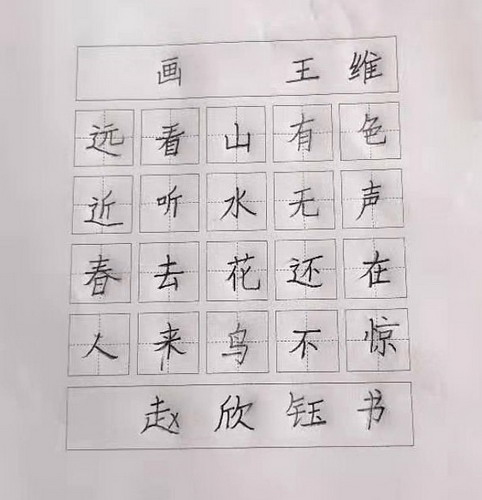 画 王维
远看山有色
近听水无声
春去花还在
人来鸟不惊
赵欣钰书